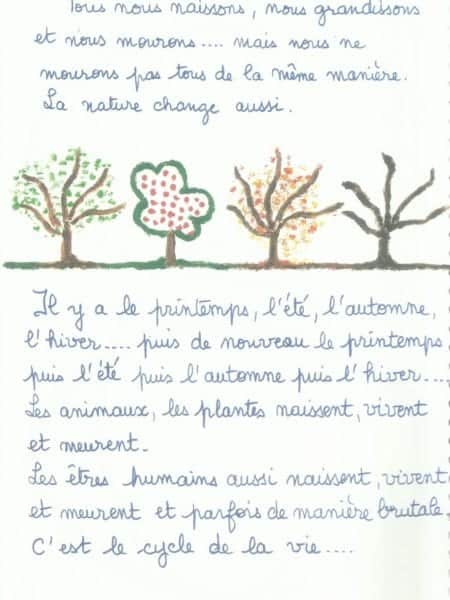 Tous nous naissons, nous grandissons
et nous mourons.... mais nous ne
mourons pas tous de la même manière.
La nature change aussi.
Il y a le printemps, l'été, l'automne,
l'hiver.... puis de nouveau le printemps
puis l'été puis l'automne puis l'hiver....
Les animaux, les plantes naissent, vivent
et meurent.
Les êtres humains aussi naissent, vivent
et meurent et parfois de manière brutale.
C'est le cycle de la vie....